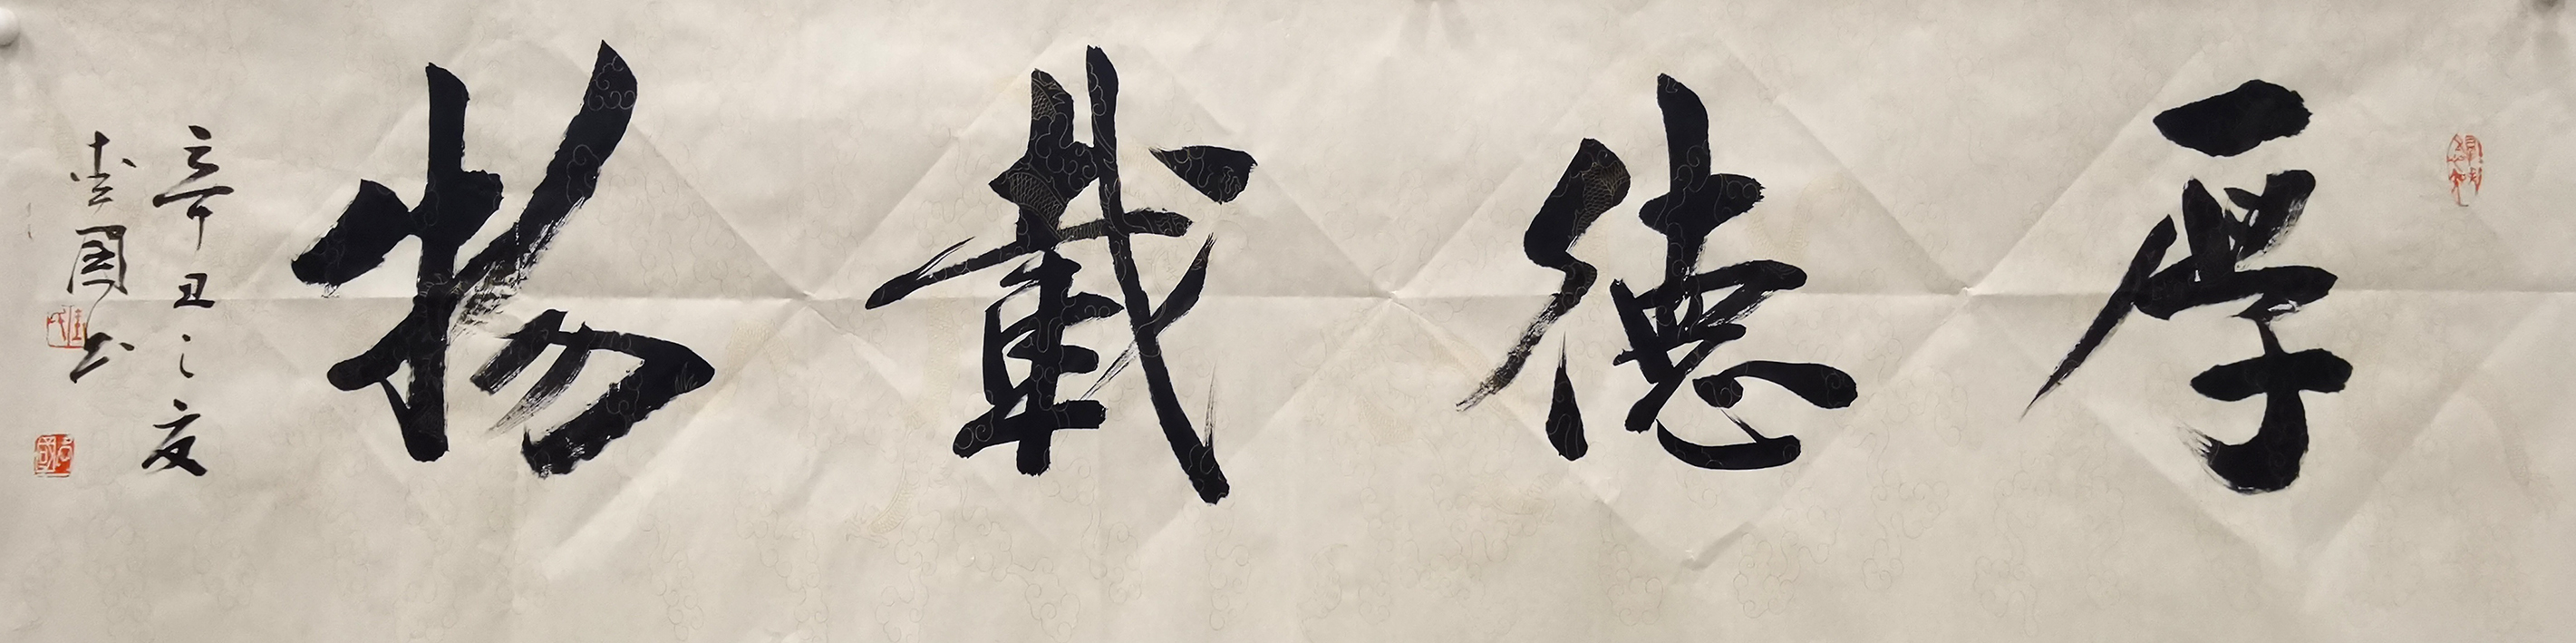 厚德載物
辛丑之夏
志國书